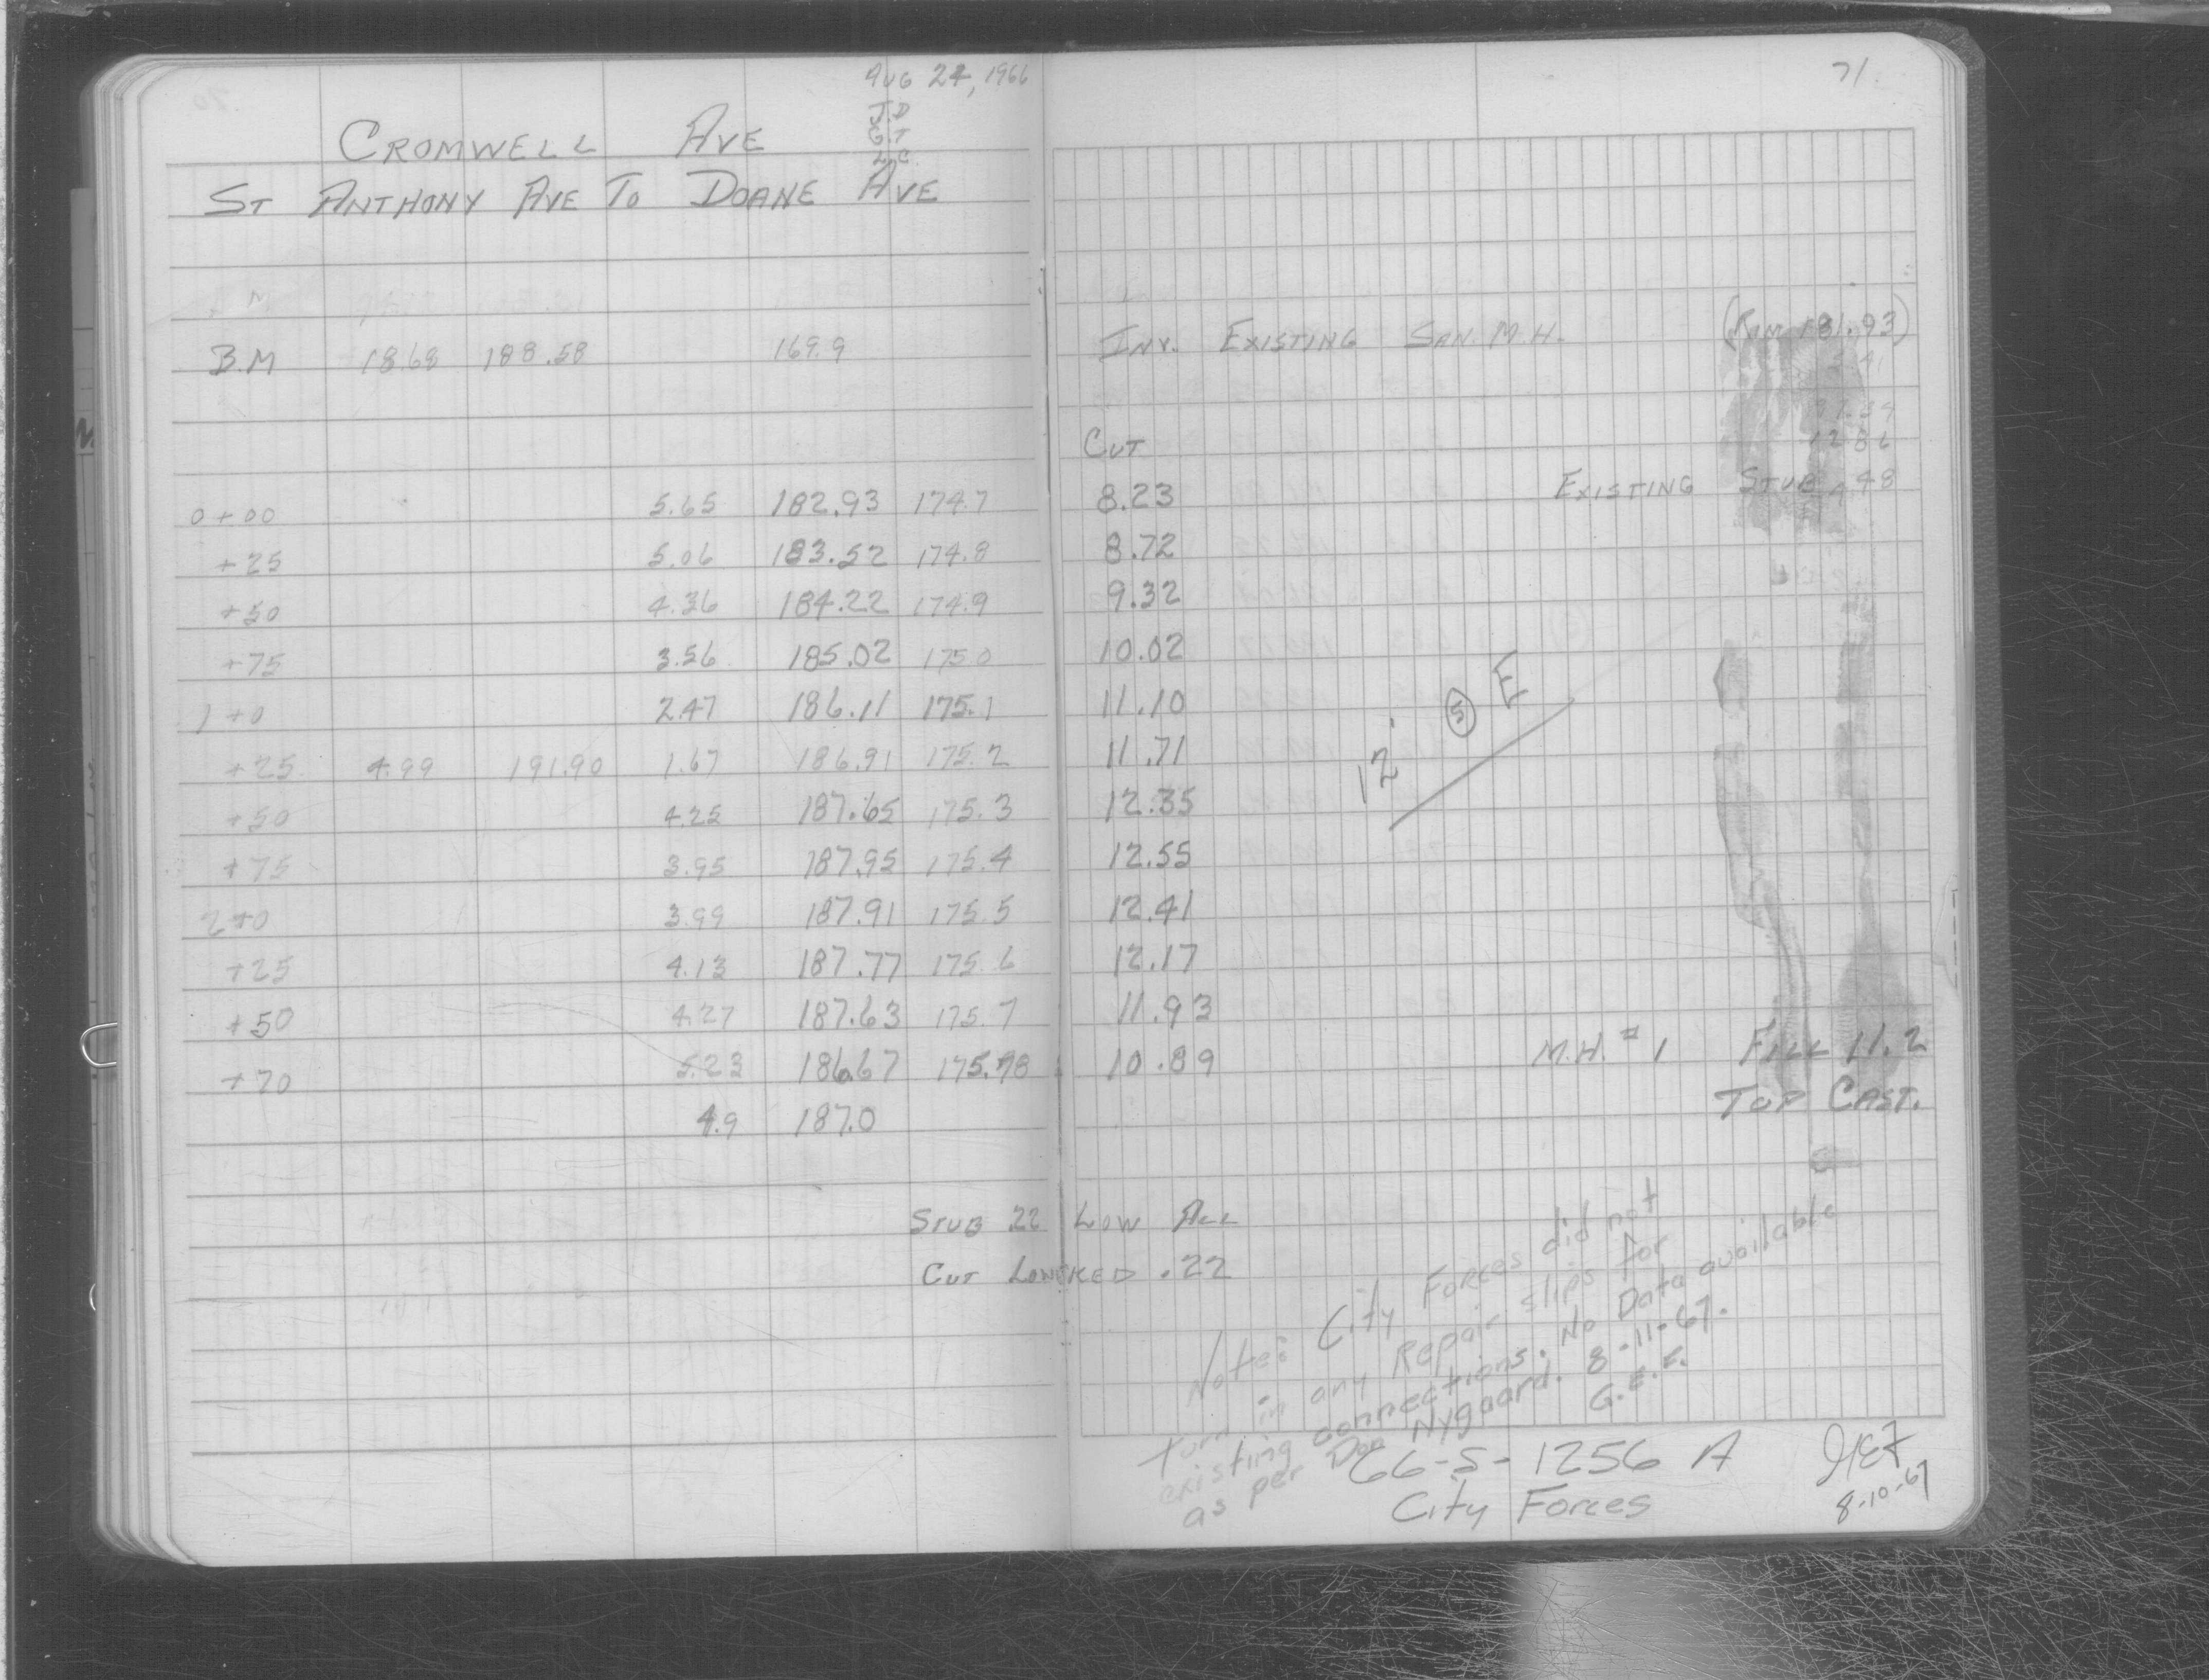 AUG 24, 1966
J.D
G.T
L.C.
CROMWELL AVE
ST ANTHONY AVE TO DOANE AVE
B.M 18.68 188.58 169.9
0+00 5.65 182.93 174.7
+25 5.06 183.52 174.8
+50 4.36 184.22 174.9
+75 3.56 185.02 175.0
1+0 2.47 186.11 175.1
+25 4.99 191.90 1.67 186.91 175.2
+50 4.25 187.65 175.3
+75 3.95 187.95 175.4
2+0 3.99 187.91 175.5
+25 4.13 187.77 175.6
+50 4.27 187.63 175.7
+70 5.23 186.67 175.78
4.9 187.0
STUB .22 LOW ALL
CUT LOWERED .22
71.
INV. EXISTING SAN. M.H. (RIM 181.93)
CUT
8.23 EXISTING STUB
8.72
9.32
10.02
11.10
11.71
12.35
12.55
12.41
12.17
11.93
10.89 M.H. #1 FILL 11.2
TOP CAST.
12' (5) E
Note: City Forces did not
turn in any Repair slips for
existing connections. No Data available
as per Don Nygaard. 8-11-67.
G.E.E.
66-S-1256 A
City Forces
8-10-67